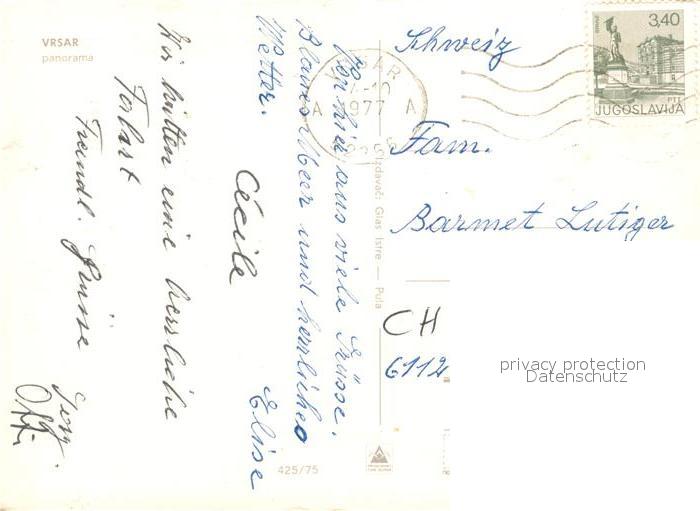 VRSAR
panorama
Von hier aus viele Grüsse.
Blaues Meer und herrliches
Wetter.
Cécile Elise
Wir hatten eine herrliche
Fahrt
Freundl. Grüsse
Schweiz
Fam.
Barmet Lutiger
CH
6112
3,40
JUGOSLAVIJA
VRSAR
1977
A A
Izdavač: Glas Istre — Pula
425/75
privacy protection
Datenschutz